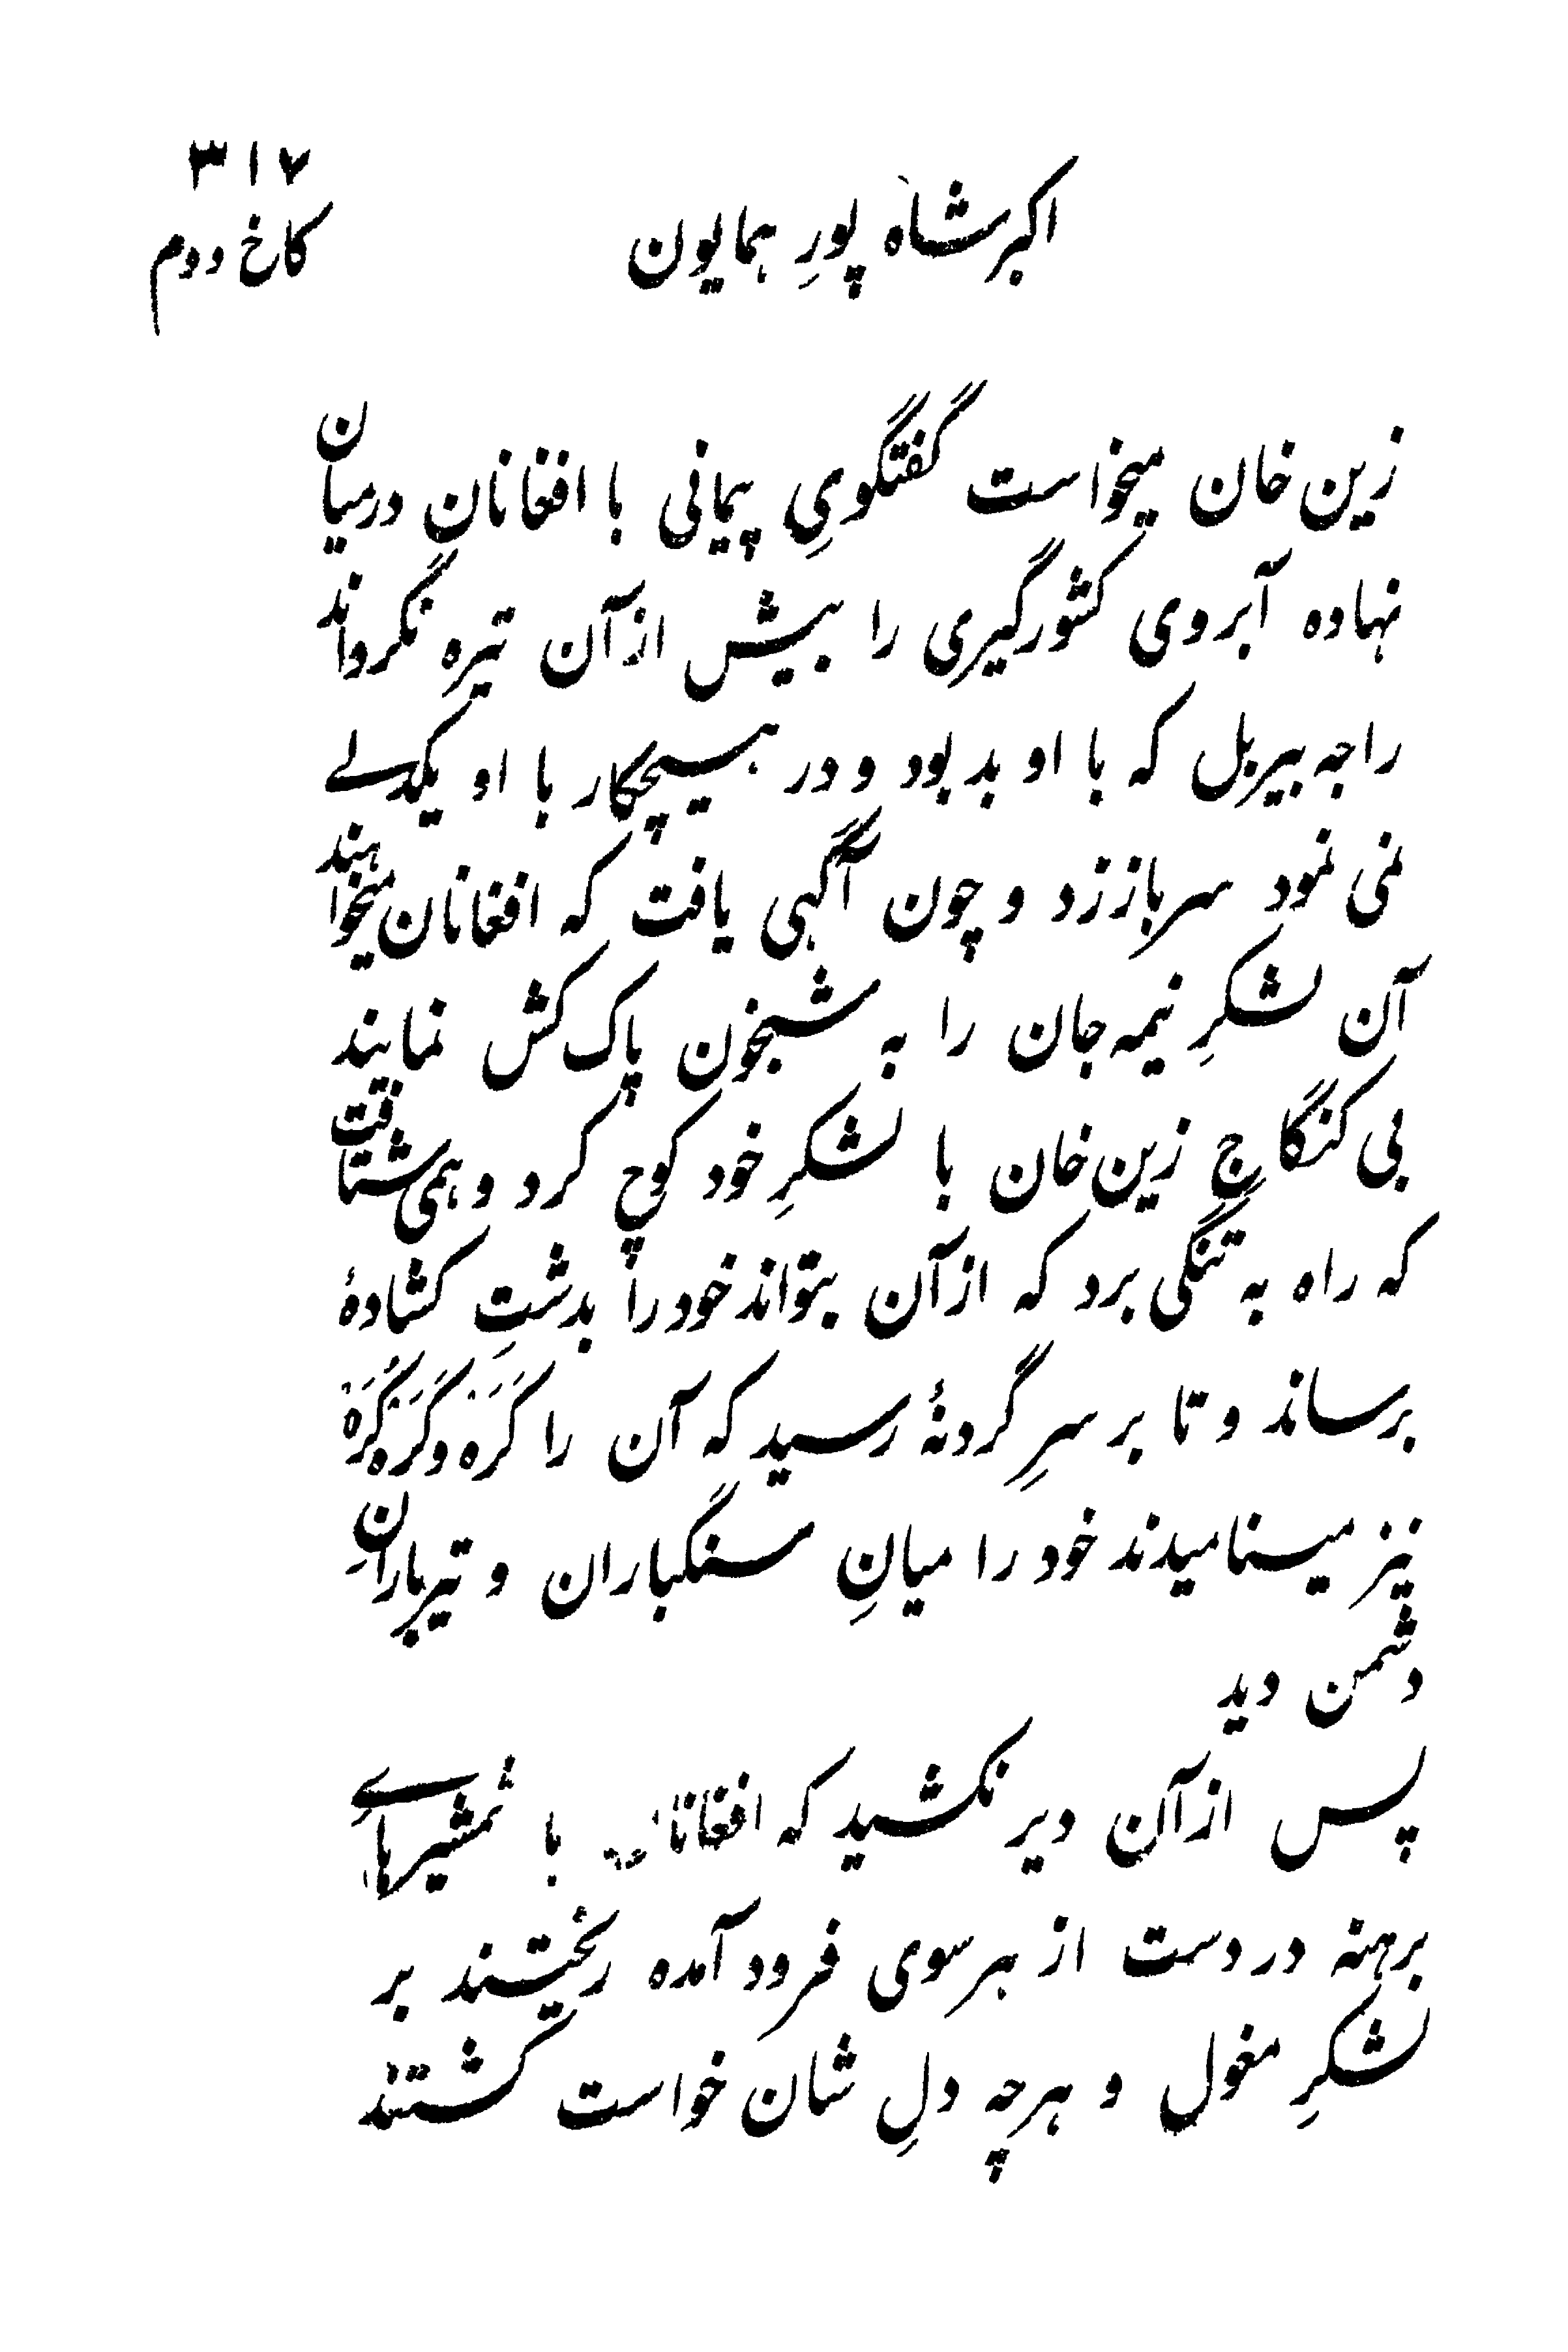 ۳۱۷
اکبرشاه پورِ همایون
کاخ دوم
زین خان میخواست گفتگویِ پیمانی با افغانان درمیان
نهاده آبروی کشورگیریِ را بیش ازآن تیره نگرداند
راجه بیربل که با او بد بود و در هیچکار با او یکدلے
نمی نمود سرباززد و چون آگهی یافت که افغانان میخواهند
آن لشکرِ نیمه جان را به شبخون پاک کش نمایند
بی کنگاجِ زین خان با لشکرِ خود کوچ کرد و همی شتافت
که راه به تنگی برد که ازآن بتواند خود را بدشتِ کشادهٔ
برساند و تا بر سرِ گردنهٔ رسید که آن را کَرَه و گَرَه گَرَه
نیز مینامیدند خود را میانِ سنگباران و تیربارانِ
دشمن دید
پس ازآن دیر نکشید که افغانان با شمشیرهاے
برهنه در دست از هرسوی فرود آمده ریختند بر
لشکرِ مغول و هرچه دلِ شان خواست کشتند